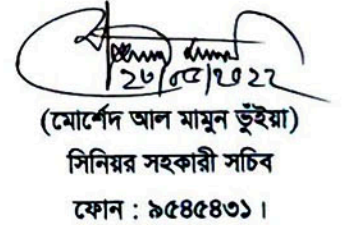 (মোর্শেদ আল মামুন ভূঁইয়া)
সিনিয়র সহকারী সচিব
ফোন : ৯৫৪৫৪৩১।